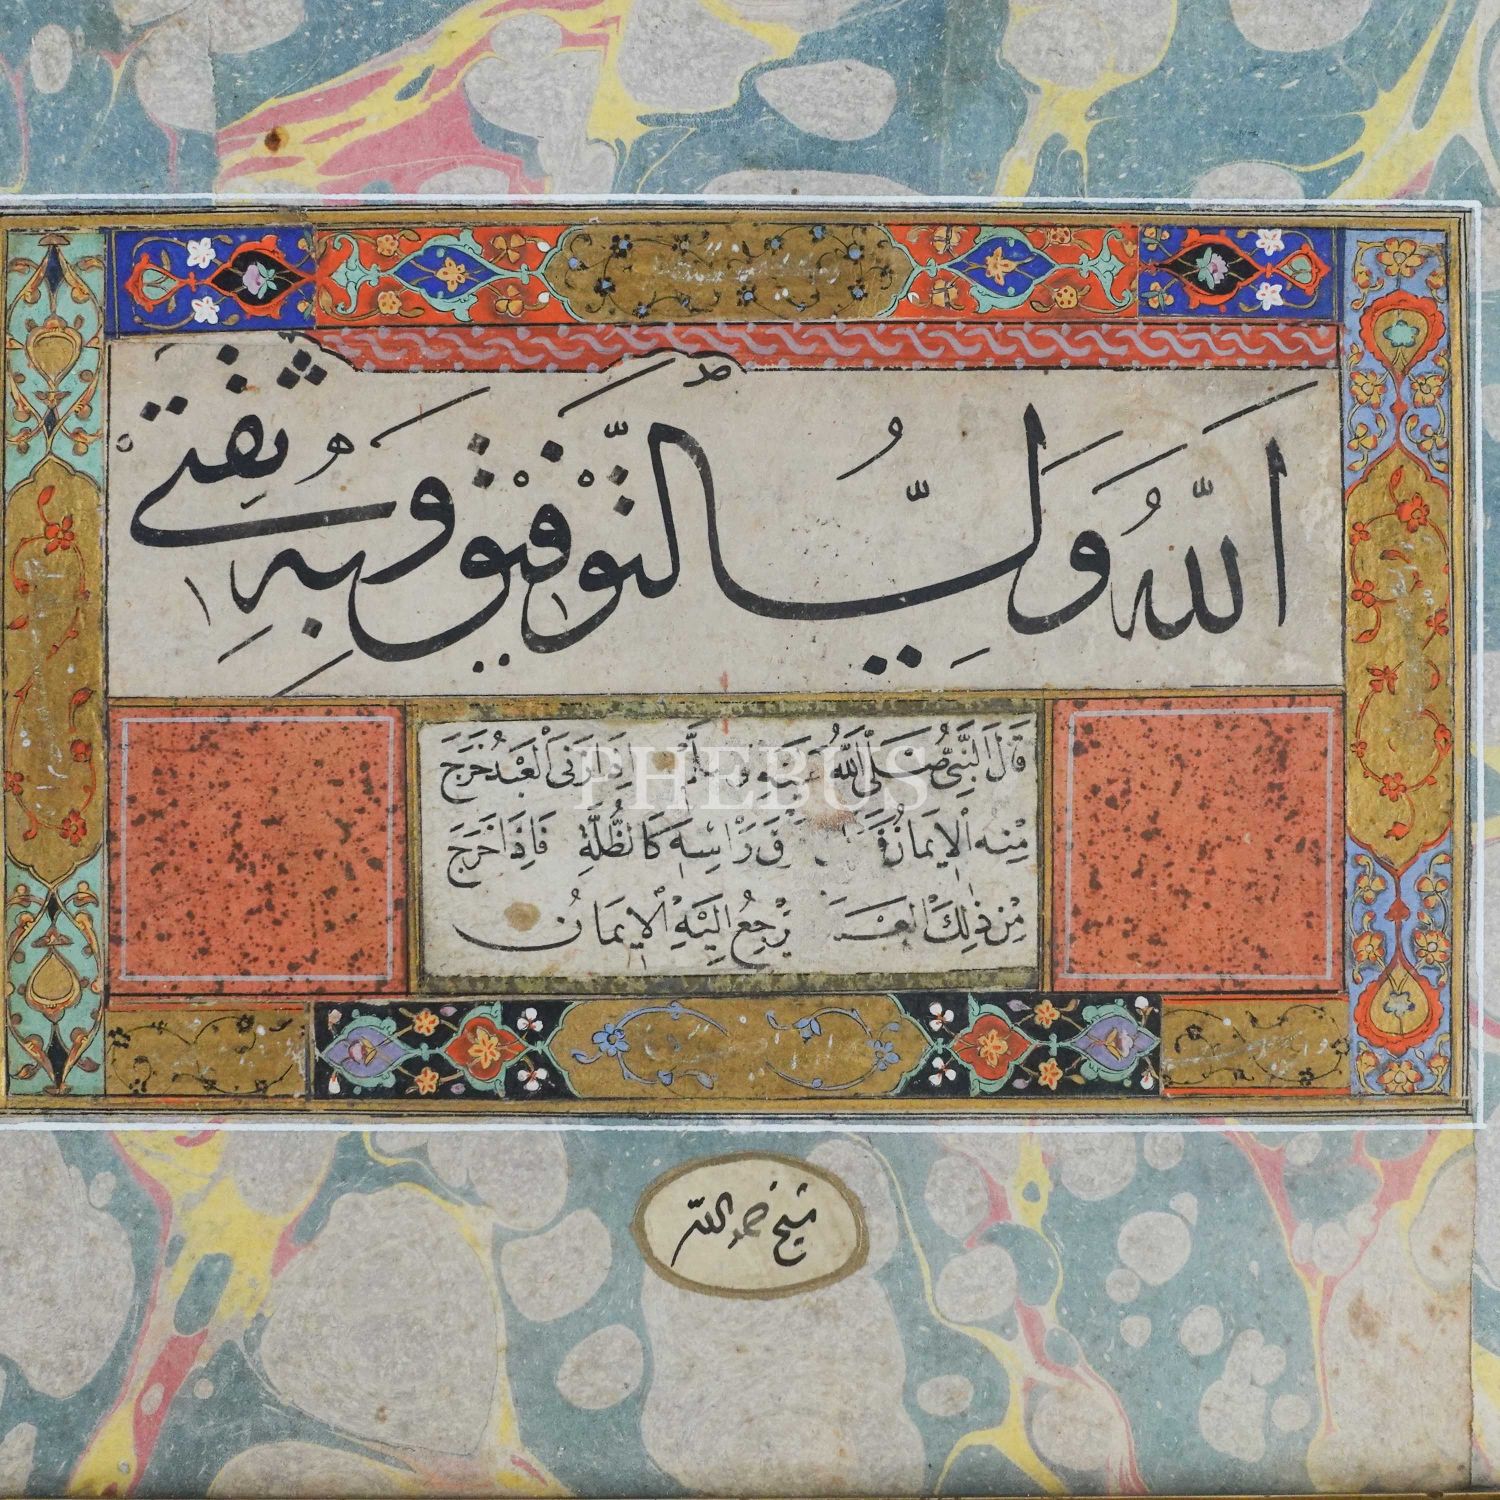 اللَّهُ وَلِيُّ التَّوْفِيقِ وَبِهِ ثِقَتِي
قَالَ النَّبِيُّ صَلَّى اللَّهُ عَلَيْهِ وَسَلَّمَ إِذَا زَنَى الْعَبْدُ خَرَجَ
مِنْهُ الْإِيمَانُ رَأْسِهِ كَالظُّلَّةِ فَإِذَا خَرَجَ
مِنْ ذَلِكَ يَرْجِعُ إِلَيْهِ الْإِيمَانُ
PHEBUS
شيخ حمد الله